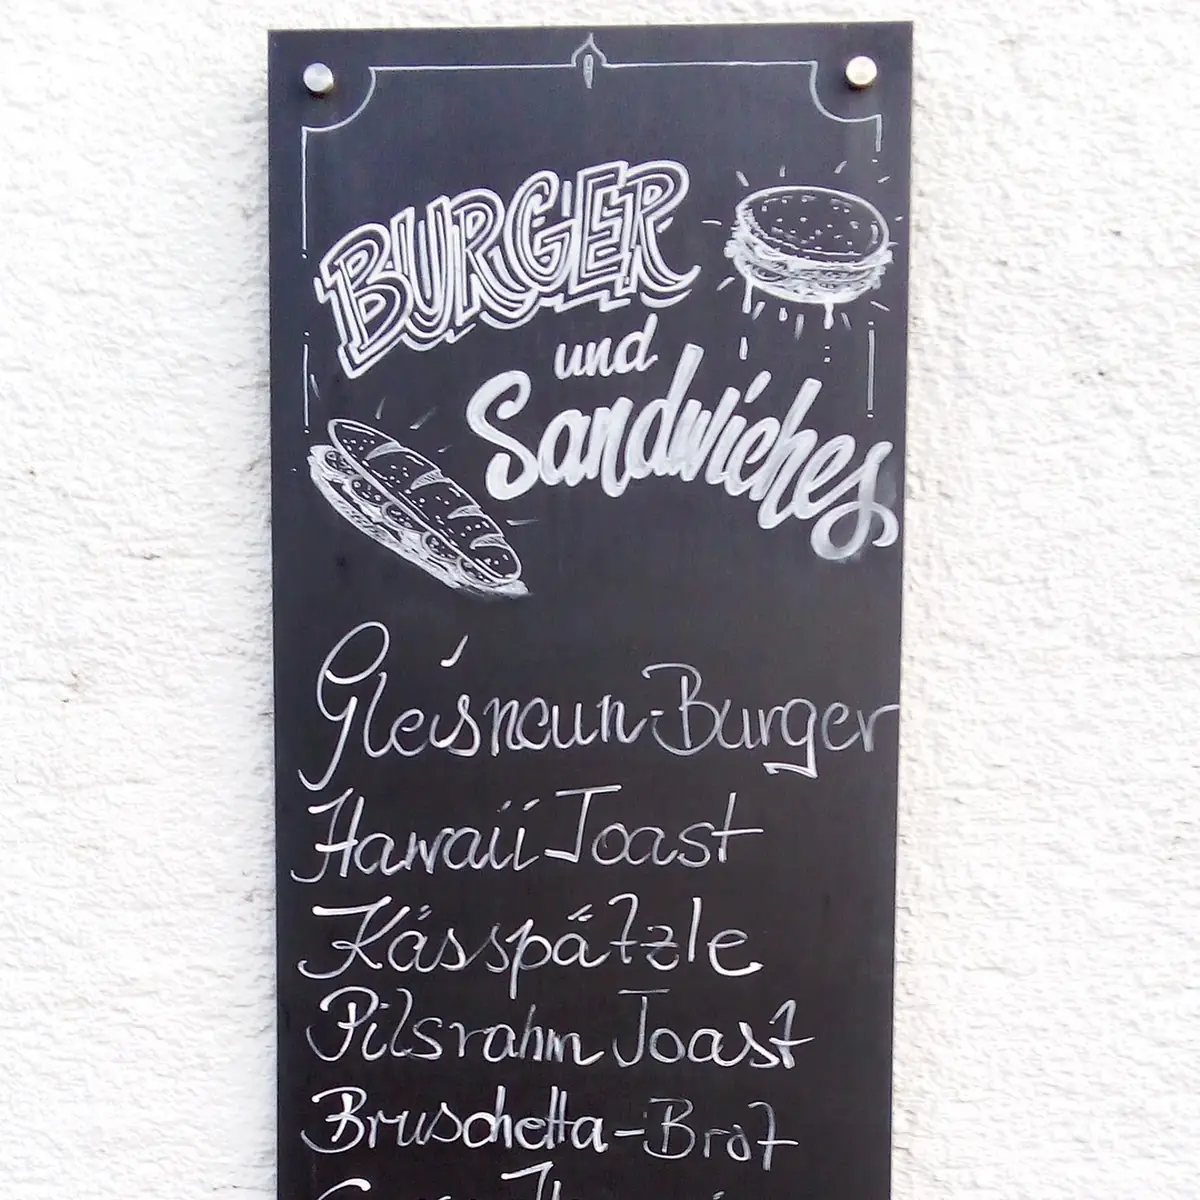 BURGER
und
Sandwiches
Gleisneun-Burger
Hawaii Toast
Kässpätzle
Pilsrahm Toast
Bruschetta-Brot